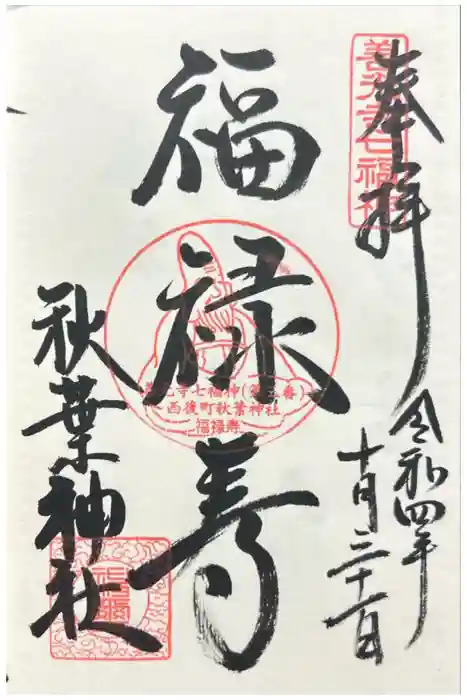 奉拝
善光寺七福神
令和四年
十月三十一日
福禄寿
善光寺七福神(第五番)
西後町秋葉神社
福禄寿
秋葉神社